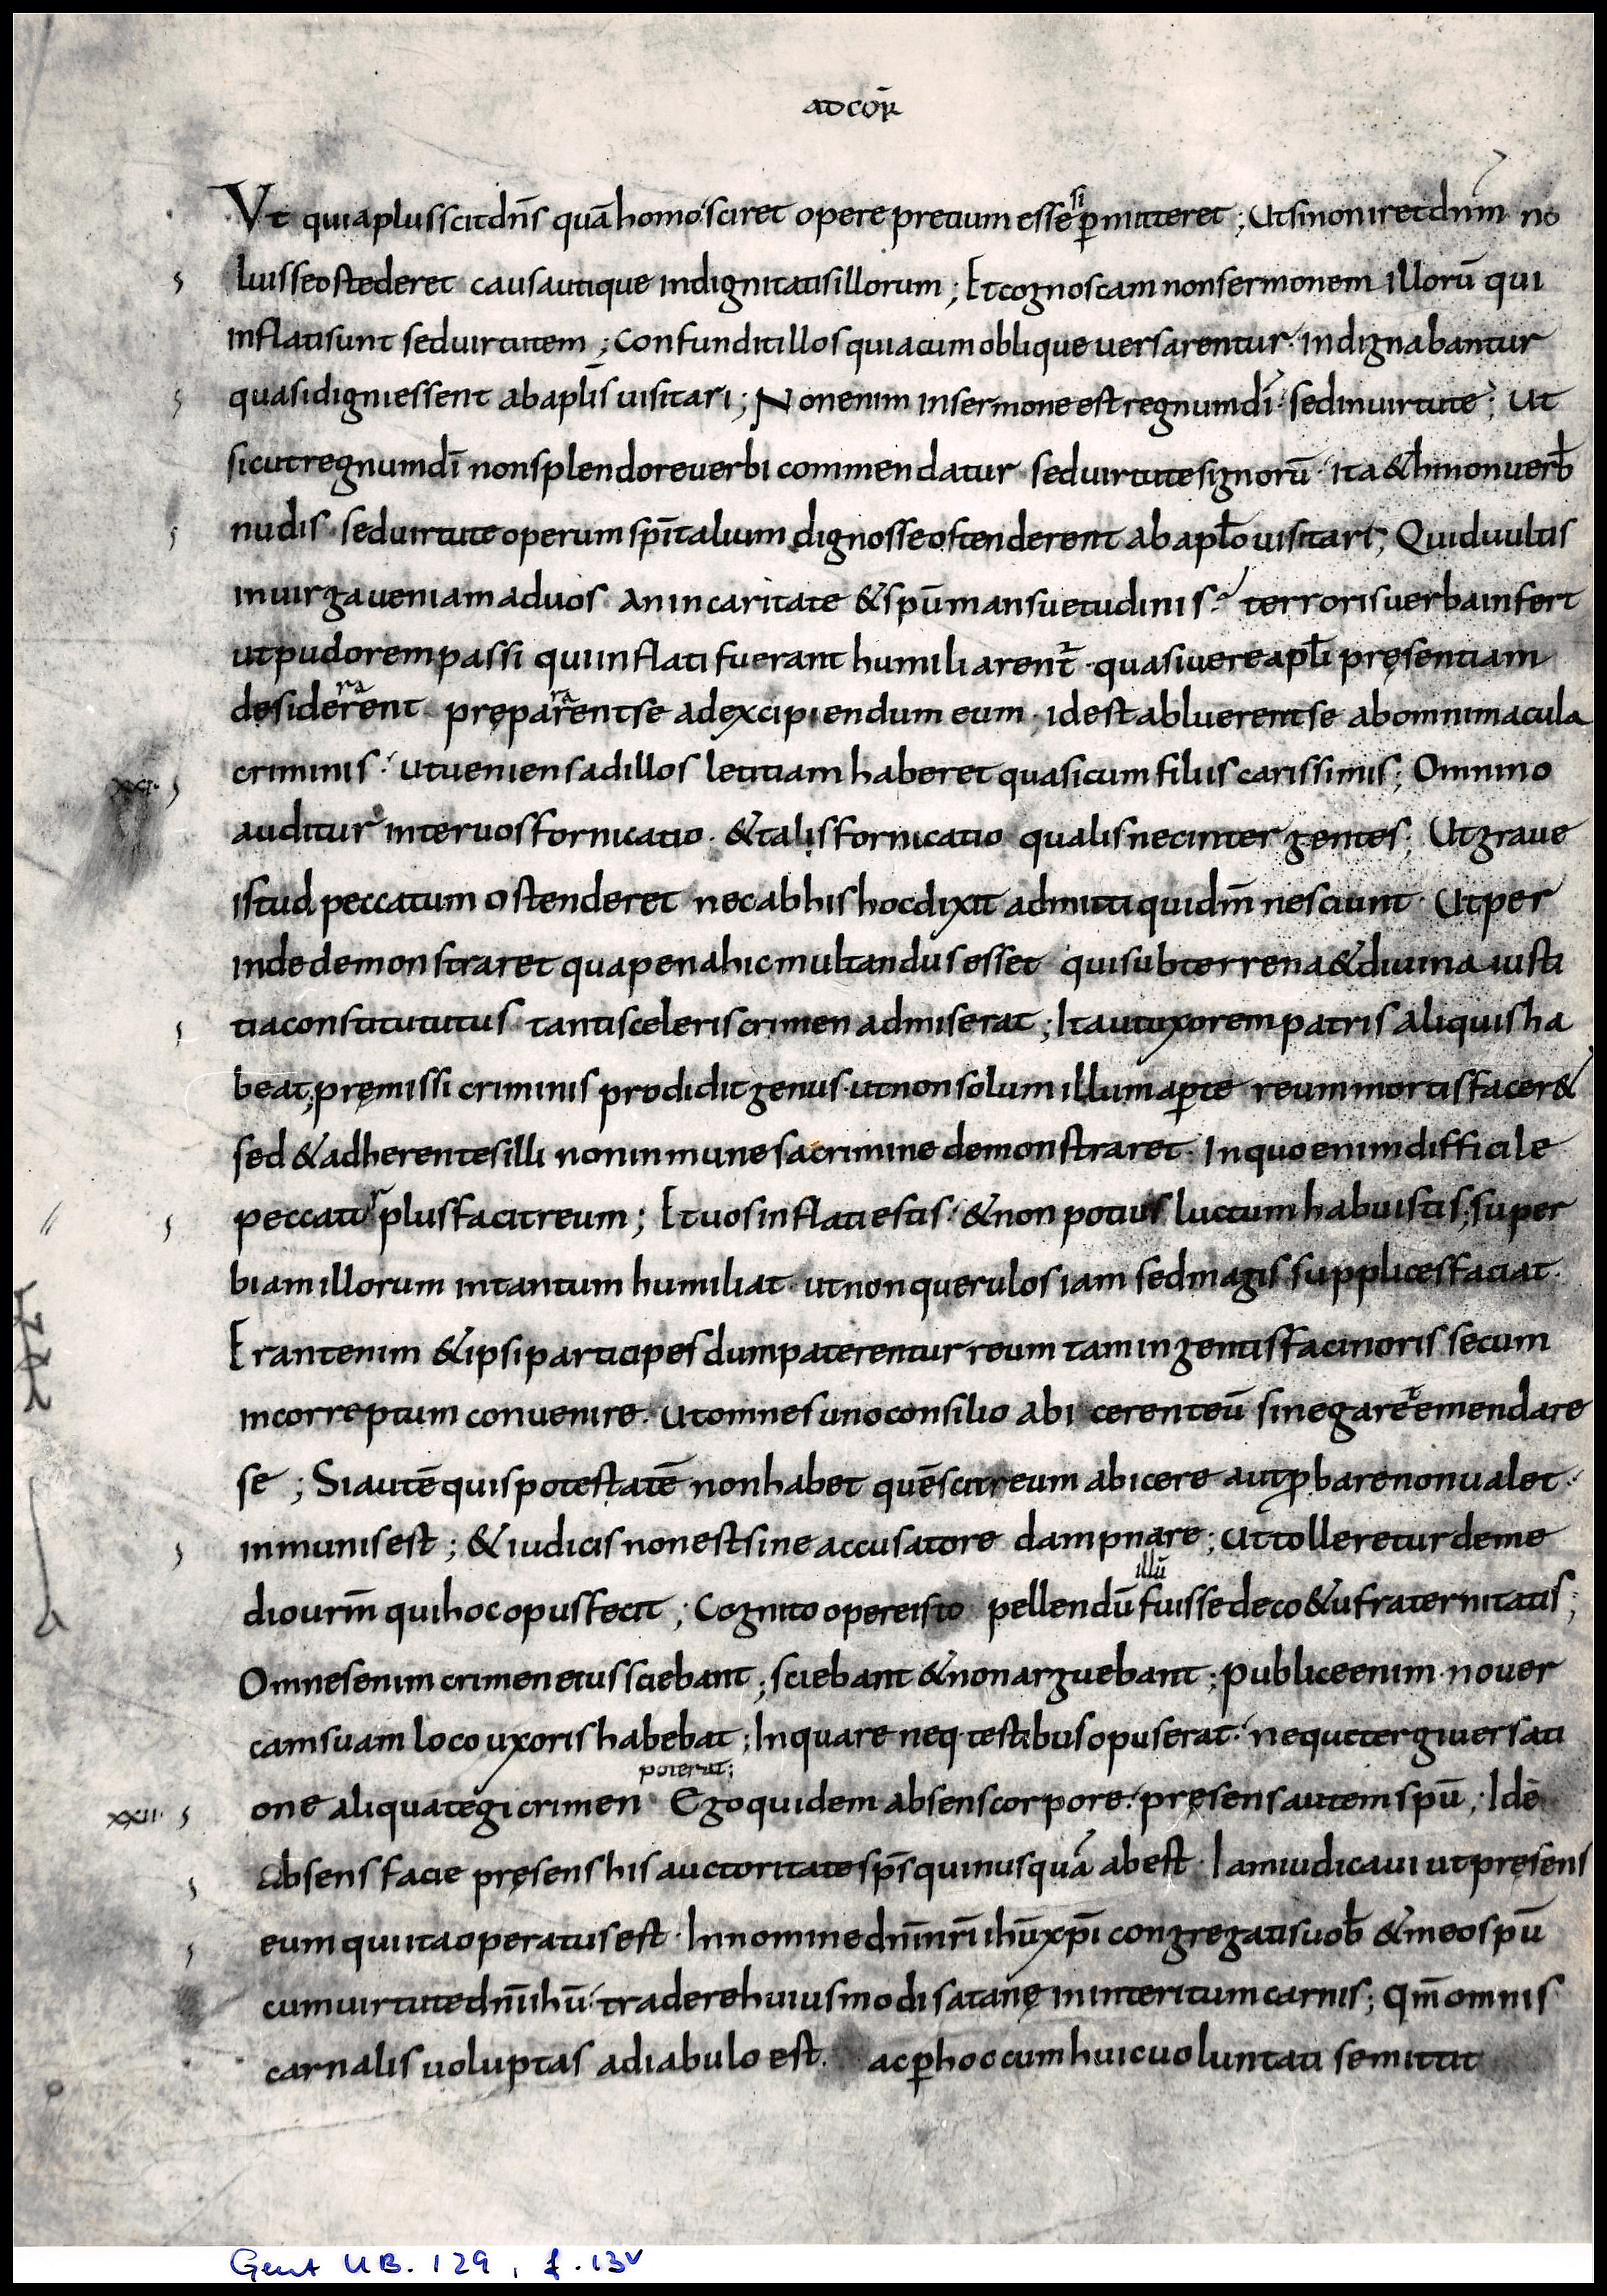 ad cor̄
Vt quia plus scit dn̄s quā homo sciret opere pretium esse si ꝑmitteret ; Ut si non iret dnm̄ no
luisse ostederet causa utique indignitatis illorum ; Et cognoscam non sermonem illorū qui
inflati sunt sed uirtutem ; Confundit illos qui acum oblique uersarentur · indignabantur
quasi digni essent ab aplīs uisitari ; Non enim in sermone est regnum dī · sed in uirtute ; Ut
sicut regnum dī non splendore uerbi commendatur sed uirtute signorū · ita & hi non uerb̄
nudis · sed uirtute operum spītalium dignos se ostenderent ab aplo̅ uisitari ; Quid uultis
in uirga ueniam ad uos an in caritate & spū mansuetudinis ? terroris uerba infert
ut pudorem passi qui inflati fuerant humiliarent᷑ · quasi uere aplī pręsentiam
desiderarent prępararent se ad excipiendum eum · id est abluerent se ab omni macula
xxi. criminis · ut ueniens ad illos letitiam haberet quasi cum filiis carissimis ; Omnino
auditur inter uos fornicatio · & talis fornicatio qualis nec inter gentes ; Ut graue
istud peccatum ostenderet nec ab his hoc dixit admitti qui dm̄ nesciunt · Ut per
inde demonstraret qua pena hic multandus esset qui sub terrena & diuina iusti
tia constitututus tanti sceleris crimen admiserat ; Ita ut uxorem patris aliquis ha
beat ; pręmissi criminis prodidit genus · ut non solum illum aꝑte reum mortis facer&
sed & adherentes illi non inmunes a crimine demonstraret · In quo enim difficile
peccatur plus facit reum ; Et uos inflati estis · & non potius luctum habuistis ; super
biam illorum in tantum humiliat · ut non querulos iam sed magis supplices faciat ·
Erant enim & ipsi participes dum paterentur reum tam ingentis facinoris secum
incorreptum conuenire · Ut omnes uno consilio abicerent eū si negaret emendare
se ; Si autē quis potestatē non habet quē scit reum abicere aut ꝓbare non ualet ·
inmunis est ; & iudicis non est sine accusatore dampnare ; Ut tolleretur de me
dio urm̄ qui hoc opus fecit ; Cognito opere isto pellendū illū fuisse de co&u fraternitatis ;
Omnes enim crimen eius sciebant ; sciebant & non arguebant ; publice enim nouer
cam suam loco uxoris habebat ; In qua re neq testibus opus erat · neq; tergiuersati
xxii. one aliqua tegi crimen poterat ; Ego quidem absens corpore · pręsens autem spū ; Idē
Absens facie pręsens his auctoritate sps̄ qui nusquā abest · Iam iudicaui ut pręsens
eum qui ita operatus est · In nomine dnī nrī ihū xpī congregatis uob̄ & meo spū
cum uirtute dnī ihū · tradere huiusmodi satanę in interitum carnis ; Qm̄ omnis
carnalis uoluptas a diabulo est · ac ꝑ hoc cum huic uoluntati se mittit
Gent UB. 129, f. 13v